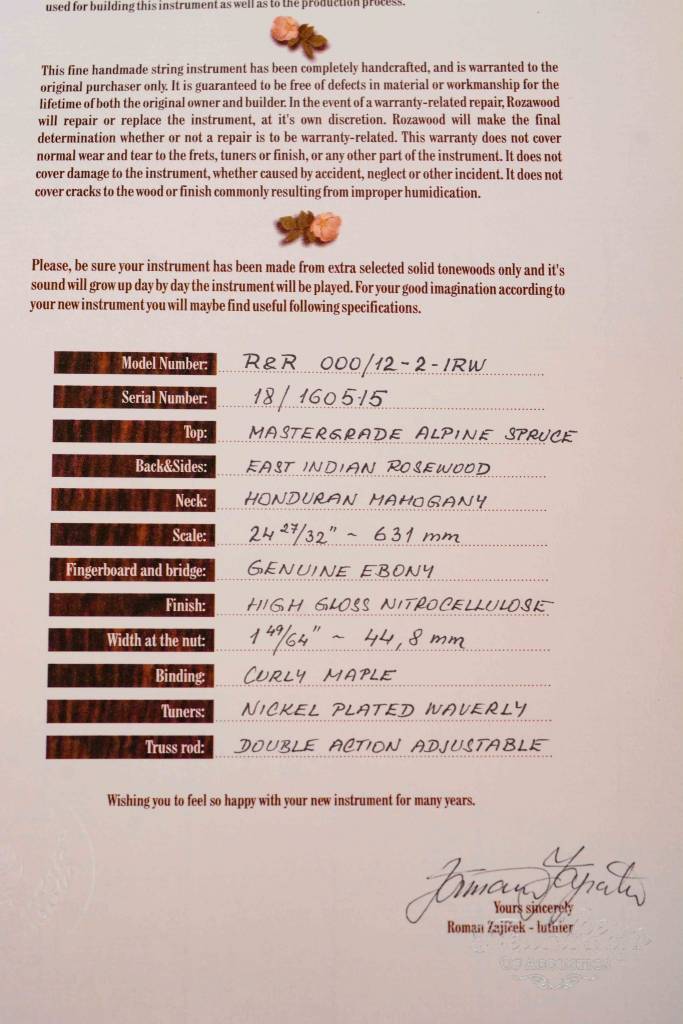 used for building this instrument as well as to the production process.
This fine handmade string instrument has been completely handcrafted, and is warranted to the
original purchaser only. It is guaranteed to be free of defects in material or workmanship for the
lifetime of both the original owner and builder. In the event of a warranty-related repair, Rozawood
will repair or replace the instrument, at it's own discretion. Rozawood will make the final
determination whether or not a repair is to be warranty-related. This warranty does not cover
normal wear and tear to the frets, tuners or finish, or any other part of the instrument. It does not
cover damage to the instrument, whether caused by accident, neglect or other incident. It does not
cover cracks to the wood or finish commonly resulting from improper humidication.
Please, be sure your instrument has been made from extra selected solid tonewoods only and it's
sound will grow up day by day the instrument will be played. For your good imagination according to
your new instrument you will maybe find useful following specifications.
Model Number: R&R 000/12-2-IRW
Serial Number: 18/160515
Top: MASTERGRADE ALPINE SPRUCE
Back&Sides: EAST INDIAN ROSEWOOD
Neck: HONDURAN MAHOGANY
Scale: 24 27/32" ~ 631 mm
Fingerboard and bridge: GENUINE EBONY
Finish: HIGH GLOSS NITROCELLULOSE
Width at the nut: 1 49/64" ~ 44,8 mm
Binding: CURLY MAPLE
Tuners: NICKEL PLATED WAVERLY
Truss rod: DOUBLE ACTION ADJUSTABLE
Wishing you to feel so happy with your new instrument for many years.
Yours sincerely
Roman Zajíček - luthier